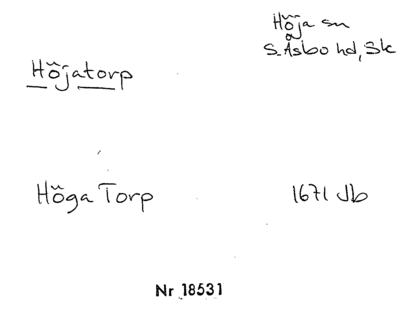 Höja sn
S. Åsbo hd, Sk
Höjatorp
Höga Torp 1671 Jb
Nr 18531